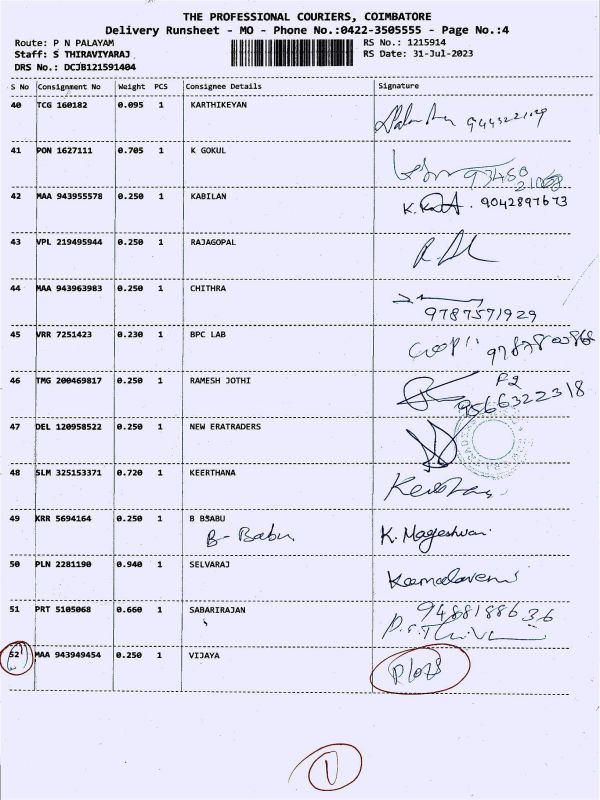 THE PROFESSIONAL COURIERS, COIMBATORE
Delivery Runsheet - MO - Phone No.:0422-3505555 - Page No.:4
Route: P N PALAYAM RS No.: 1215914
Staff: S THIRAVIYARAJ RS Date: 31-Jul-2023
DRS No.: DCJB121591404
S No Consignment No Weight PCS Consignee Details Signature
40 TCG 160182 0.095 1 KARTHIKEYAN
41 PON 1627111 0.705 1 K GOKUL
42 MAA 943955578 0.250 1 KABILAN
9042897673
43 VPL 219495944 0.250 1 RAJAGOPAL
44 MAA 943963983 0.250 1 CHITHRA
9787571929
45 VRR 7251423 0.230 1 BPC LAB
46 TMG 200469817 0.250 1 RAMESH JOTHI
9566322318
47 DEL 120958522 0.250 1 NEW ERATRADERS
48 SLM 325153371 0.720 1 KEERTHANA
49 KRR 5694164 0.250 1 B BSABU
B- Babu K. Mageshwari
50 PLN 2281190 0.940 1 SELVARAJ
51 PRT 5105068 0.660 1 SABARIRAJAN
9488188636
52 MAA 943949454 0.250 1 VIJAYA